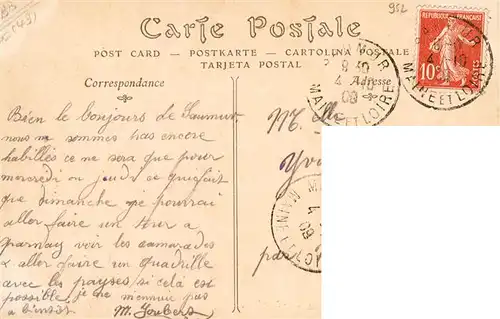 952
Carte Postale
POST CARD — POSTKARTE — CARTOLINA POSTALE
TARJETA POSTAL
Correspondance
Adresse
REPUBLIQUE FRANÇAISE
10c
MAINE ET LOIRE
4 - 10
09
MAINE ET LOIRE
Bien le bonjours de Saumur
nous ne sommes pas encore
habillés ce ne sera que pour
mercredi ou jeudi ce qui fait
que dimanche je pourrai
aller faire un tour a
parnay voir les camarades
& aller faire un quadrille
avec les payses si celà est
possible, je ne mennuie pas
a bientôt. M. Joubert
Mlle
Yv
par